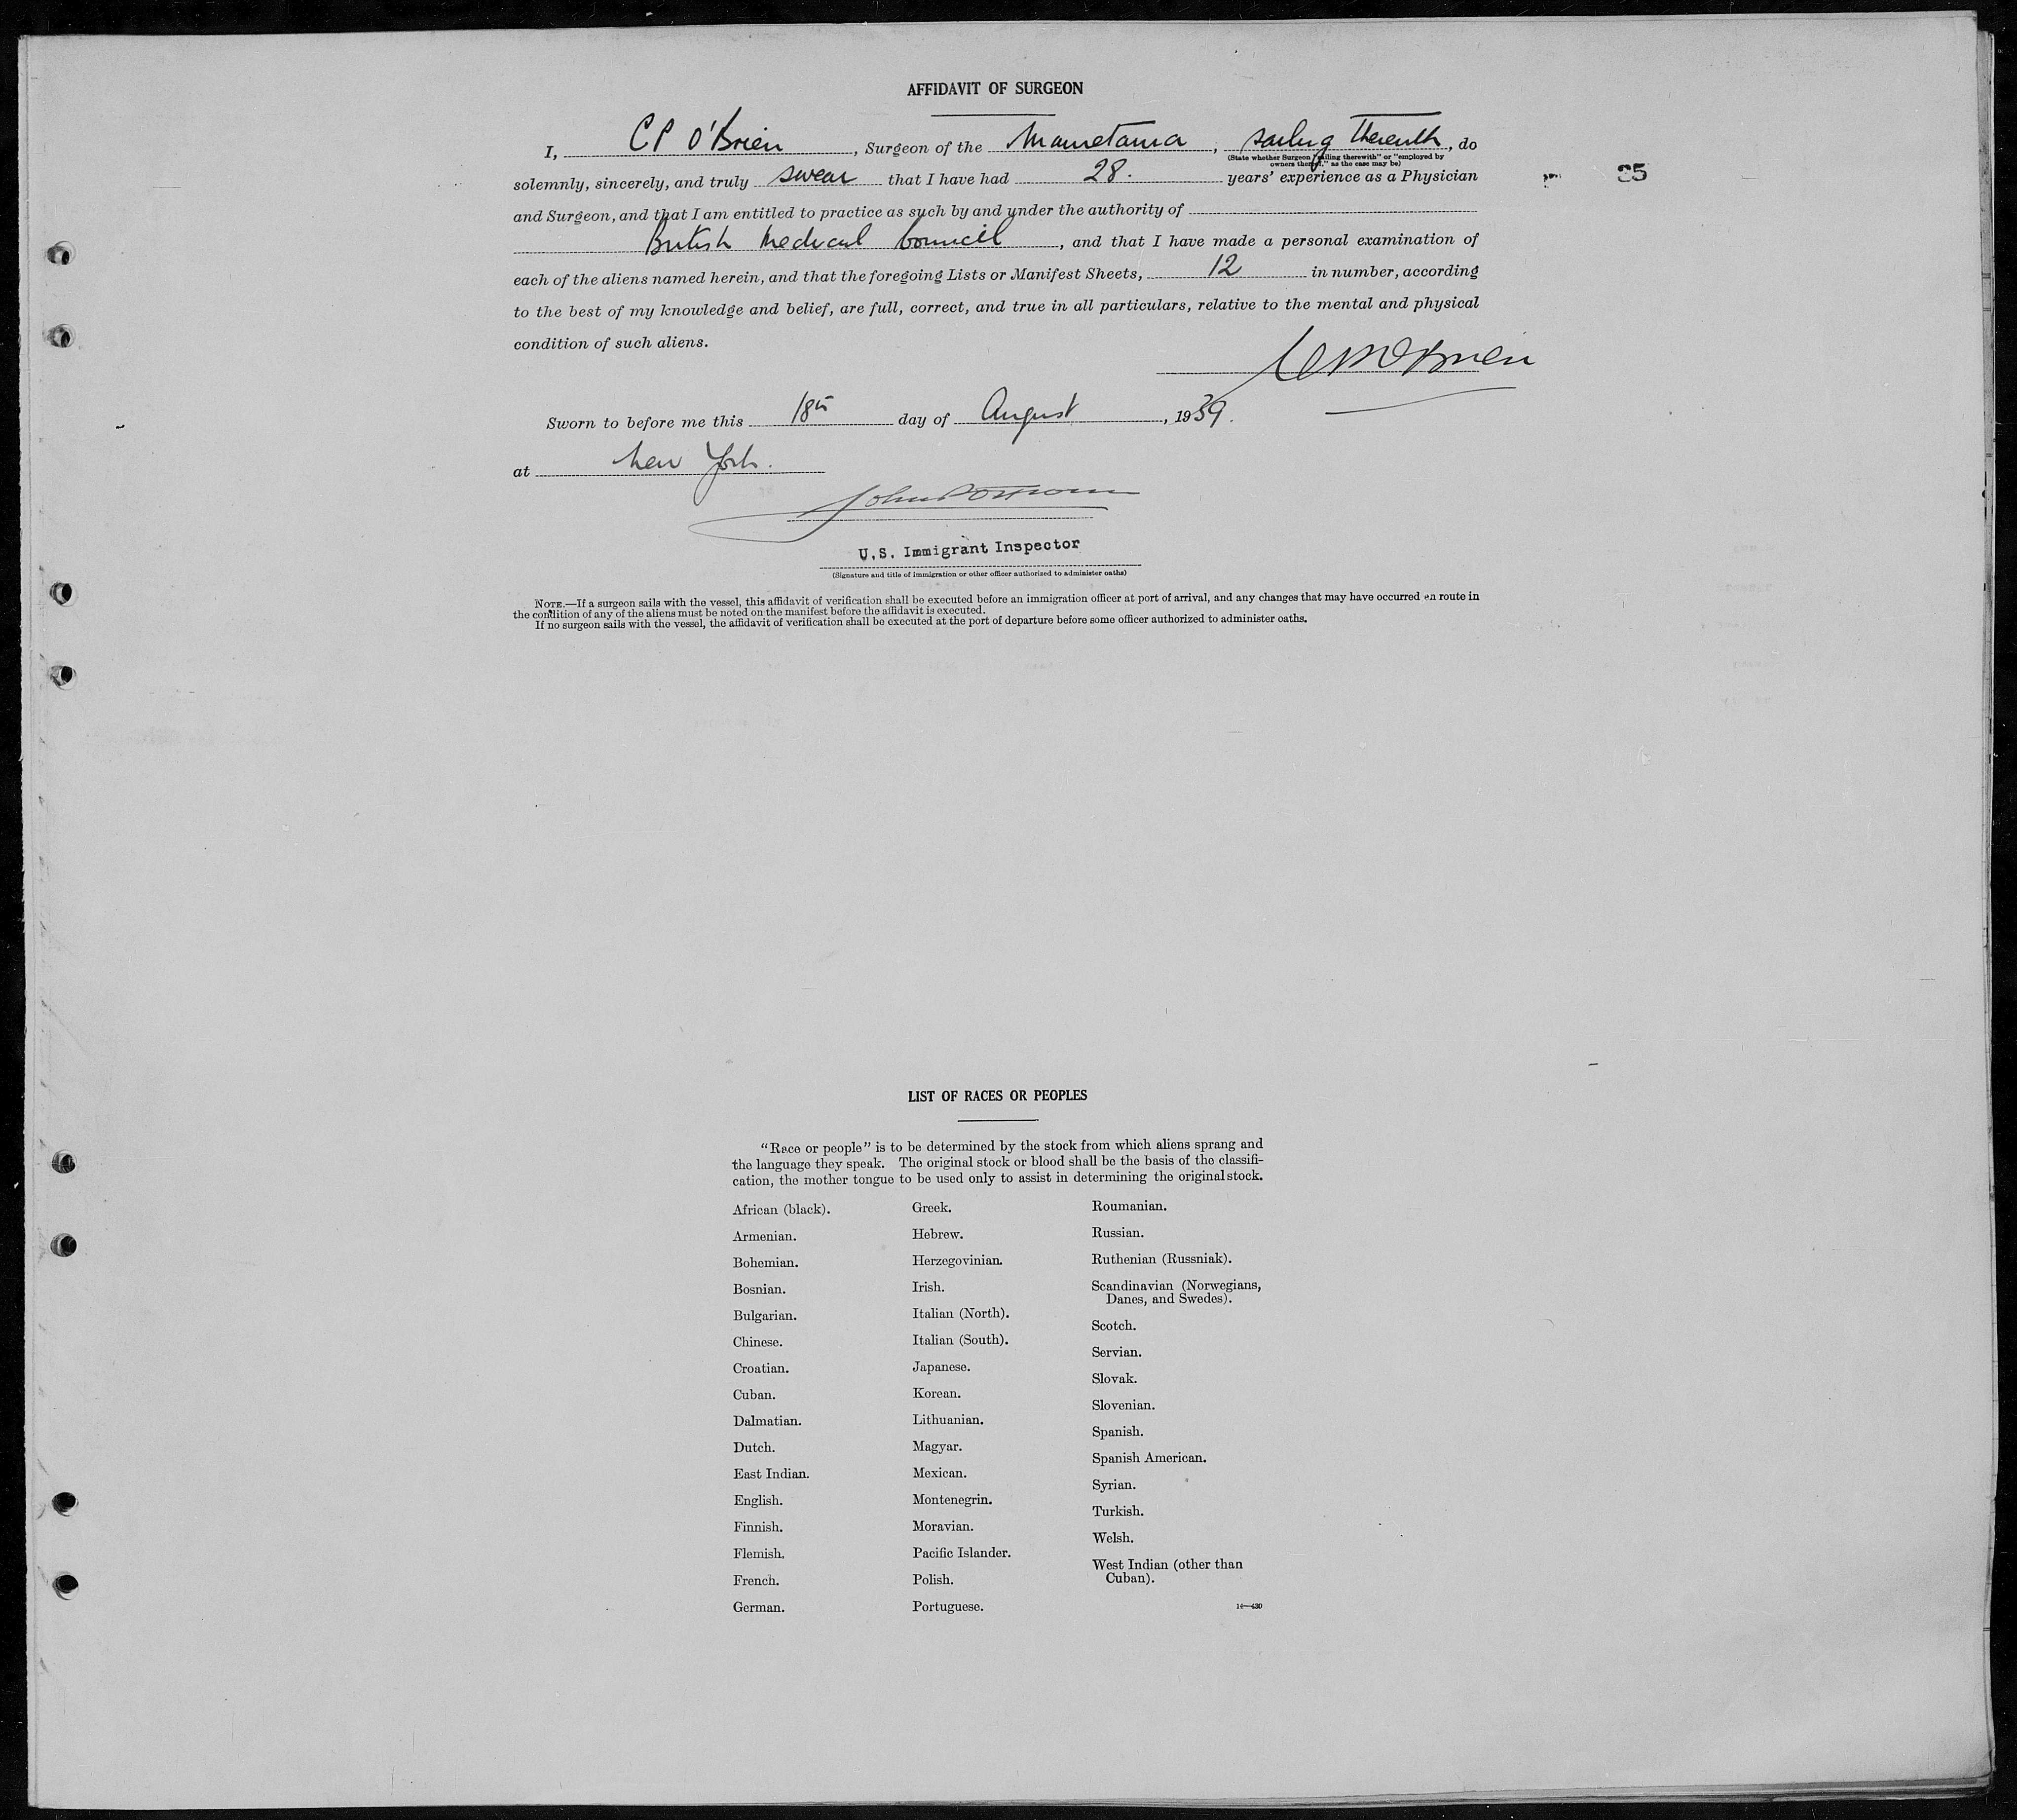 AFFIDAVIT OF SURGEON
I, CP O'Brien, Surgeon of the Mauretania, sailing therewith, do
(State whether Surgeon "sailing therewith" or "employed by
owners thereof," as the case may be)
solemnly, sincerely, and truly swear that I have had 28. years' experience as a Physician
and Surgeon, and that I am entitled to practice as such by and under the authority of
British Medical Council, and that I have made a personal examination of
each of the aliens named herein, and that the foregoing Lists or Manifest Sheets, 12 in number, according
to the best of my knowledge and belief, are full, correct, and true in all particulars, relative to the mental and physical
condition of such aliens.
CP O'Brien
Sworn to before me this 18th day of August, 1939.
at New York.
U.S. Immigrant Inspector
(Signature and title of immigration or other officer authorized to administer oaths)
NOTE.—If a surgeon sails with the vessel, this affidavit of verification shall be executed before an immigration officer at port of arrival, and any changes that may have occurred en route in
the condition of any of the aliens must be noted on the manifest before the affidavit is executed.
If no surgeon sails with the vessel, the affidavit of verification shall be executed at the port of departure before some officer authorized to administer oaths.
LIST OF RACES OR PEOPLES
"Race or people" is to be determined by the stock from which aliens sprang and
the language they speak. The original stock or blood shall be the basis of the classifi-
cation, the mother tongue to be used only to assist in determining the original stock.
African (black).
Armenian.
Bohemian.
Bosnian.
Bulgarian.
Chinese.
Croatian.
Cuban.
Dalmatian.
Dutch.
East Indian.
English.
Finnish.
Flemish.
French.
German.
Greek.
Hebrew.
Herzegovinian.
Irish.
Italian (North).
Italian (South).
Japanese.
Korean.
Lithuanian.
Magyar.
Mexican.
Montenegrin.
Moravian.
Pacific Islander.
Polish.
Portuguese.
Roumanian.
Russian.
Ruthenian (Russniak).
Scandinavian (Norwegians,
Danes, and Swedes).
Scotch.
Servian.
Slovak.
Slovenian.
Spanish.
Spanish American.
Syrian.
Turkish.
Welsh.
West Indian (other than
Cuban).
14—430